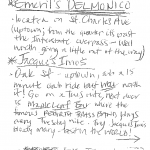 * EMERIL'S DELMONICO
- location on St Charles Ave
(uptown from the quarter it's past
the Interstate overpass - Well
worth going a little out of the way)
* Jacque's Imos
Oak St - uptown, is a 15
minute cab ride but well worth
it! Go on a Tues nite, next door
is Maple Leaf Bar where the
famous Rebirth Brass Band plays
every Tuesday nite. They
many - best in the world!